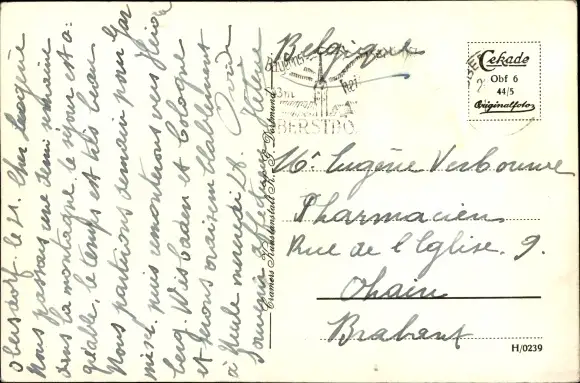 Oberstdorf le 21. Cher Eugène
Nous passons une demi semaine
dans la montagne, le séjour est a-
gréable, le temps est très beau.
Nous partirons demain pour Gar
misch, puis remonterons vers Heidel
berg, Wiesbaden et Cologne
et serons vraisemblablement
à Uccle mercredi 28.
Souvenir affectueux
Belgique
OBERSTDO
Cekade
Obf 6
44/5
Originalfoto
Mr Eugène Verbouwe
Pharmacien
Rue de l'Eglise. 9.
Ohain
Brabant
Cramers Kunstanstalt K.-G., Dortmund
H/0239